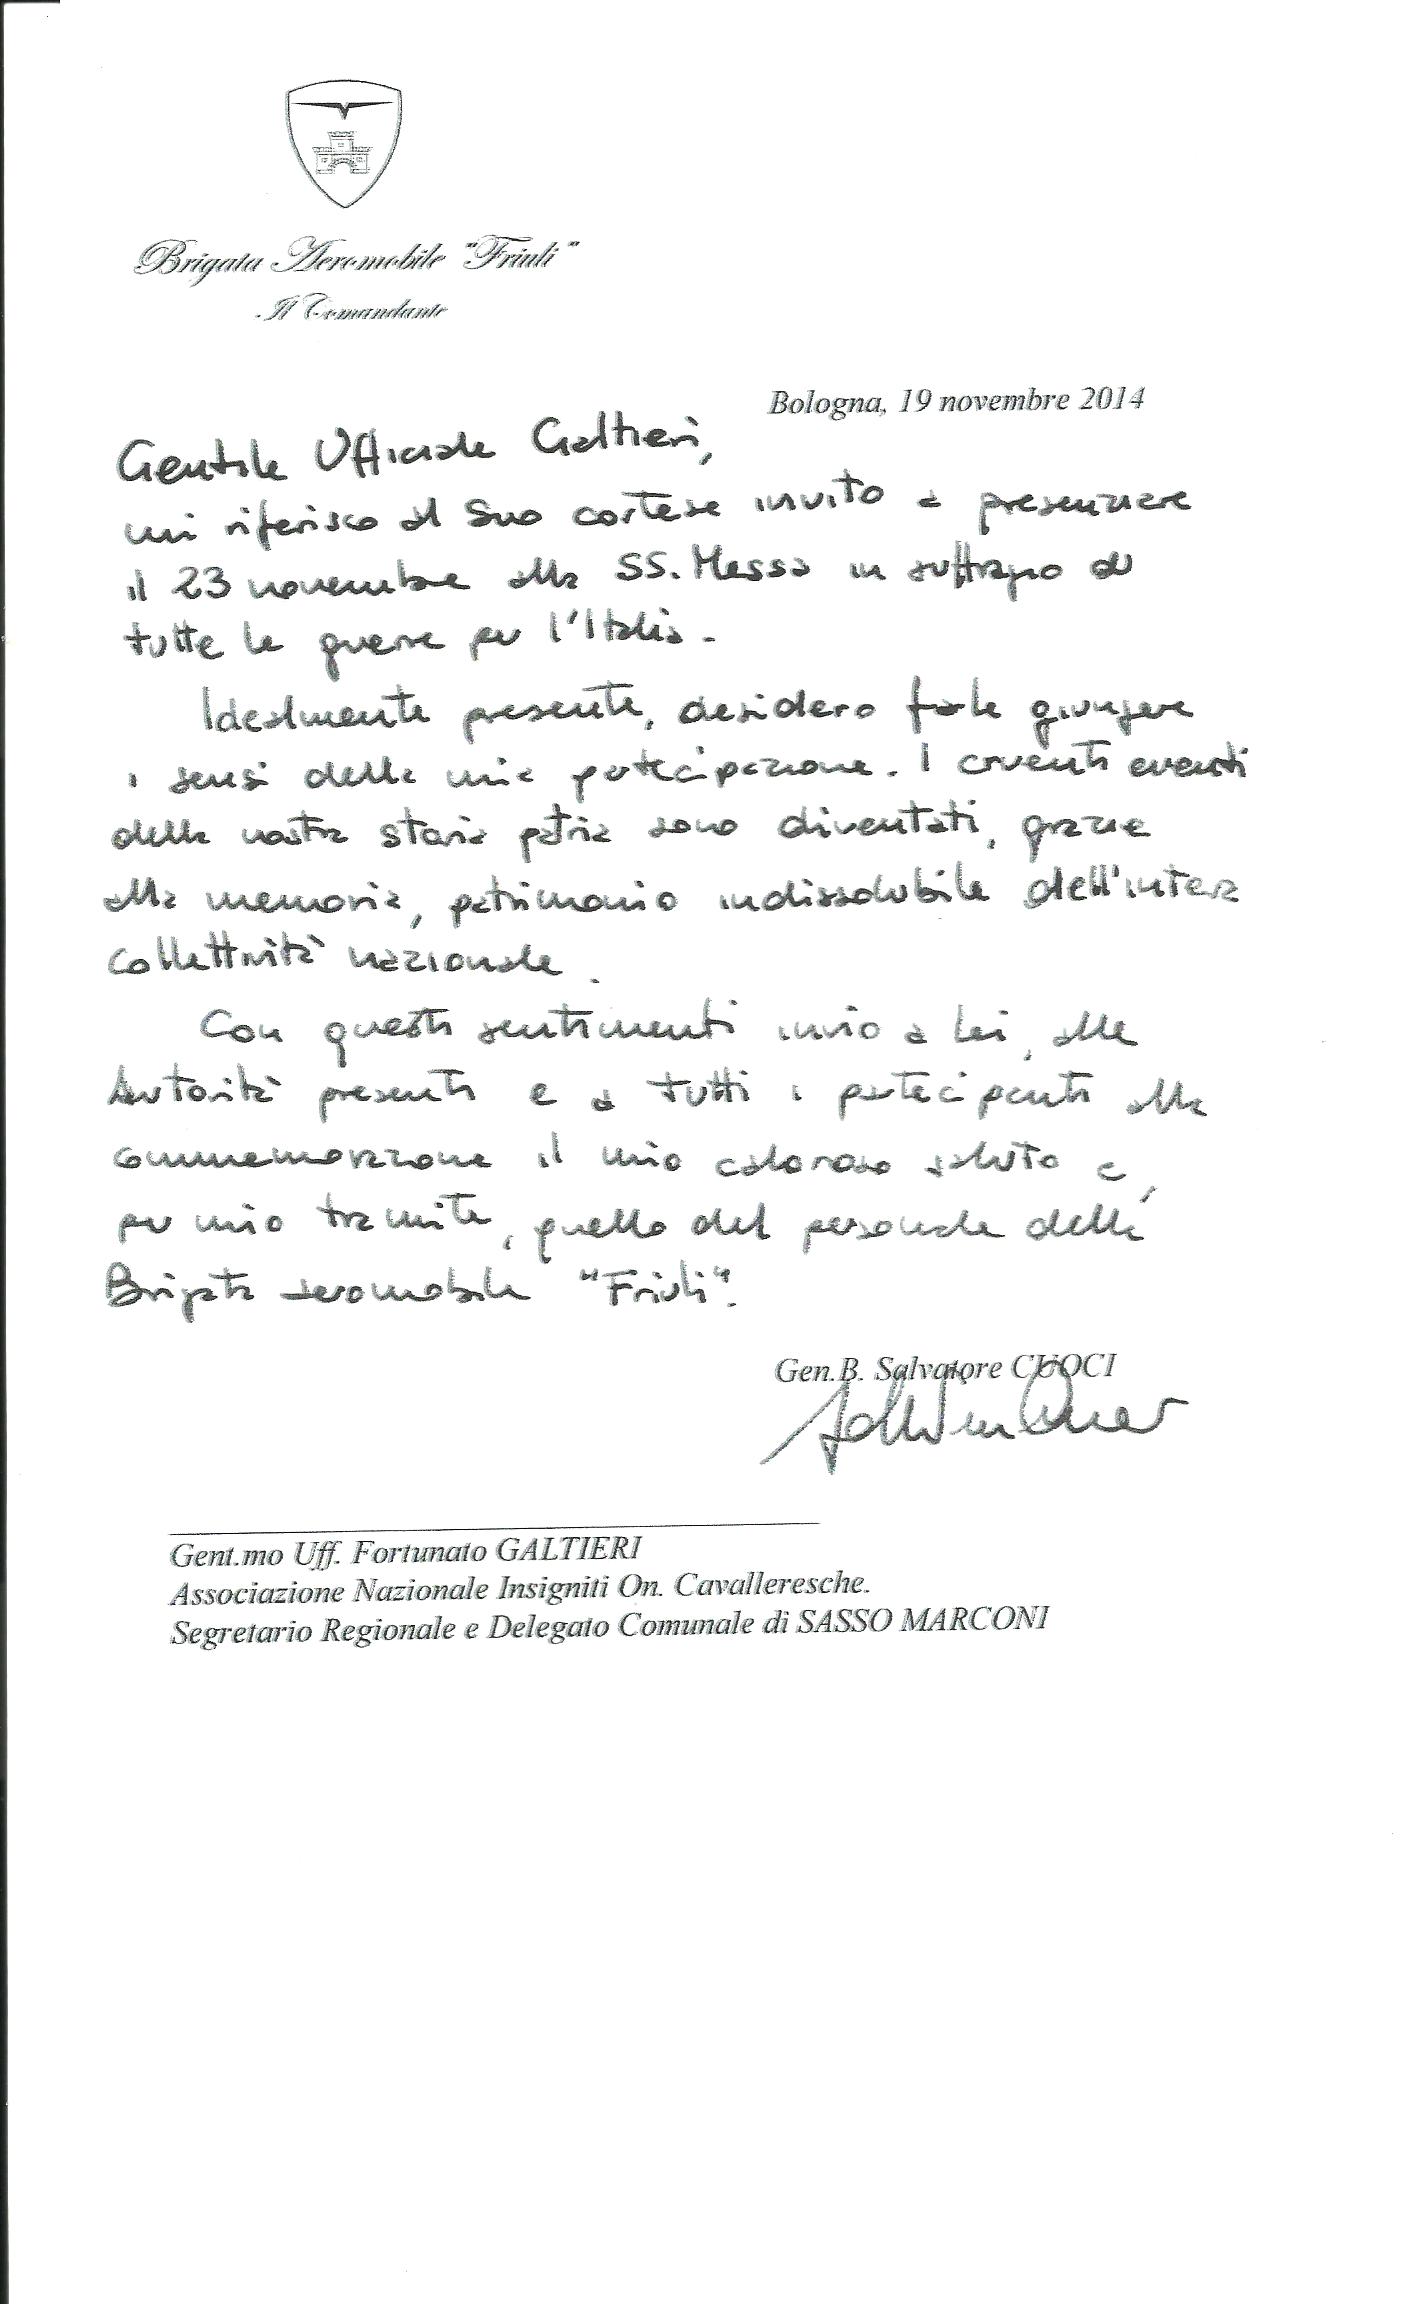 Brigata Aeromobile "Friuli"
Il Comandante
Bologna, 19 novembre 2014
Gentile Ufficiale Galtieri,
mi riferisco al Suo cortese invito a presenziare
il 23 novembre alla SS. Messa in suffragio di
tutte le guerre per l'Italia.
Idealmente presente, desidero farle giungere
i sensi della mia partecipazione. I cruenti eventi
della nostra storia patria sono diventati, grazie
alla memoria, patrimonio indissolubile dell'intera
collettività nazionale.
Con questi sentimenti invio a Lei, alle
Autorità presenti e a tutti i partecipanti alla
commemorazione il mio caloroso saluto e,
per mio tramite, quello del personale della
Brigata aeromobile "Friuli".
Gen.B. Salvatore CUOCI
Gent.mo Uff. Fortunato GALTIERI
Associazione Nazionale Insigniti On. Cavalleresche.
Segretario Regionale e Delegato Comunale di SASSO MARCONI